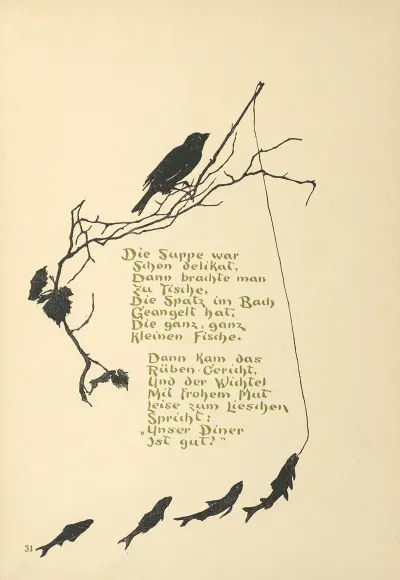 Die Suppe war
Schon delikat,
Dann brachte man
Zu Tische,
Die Spatz im Bach
Geangelt hat,
Die ganz, ganz
kleinen Fische.
Dann kam das
Rüben-Gericht,
Und der Wichtel
Mit frohem Mut
leise zum Lieschen
Spricht:
„Unser Diner
Ist gut?"
31